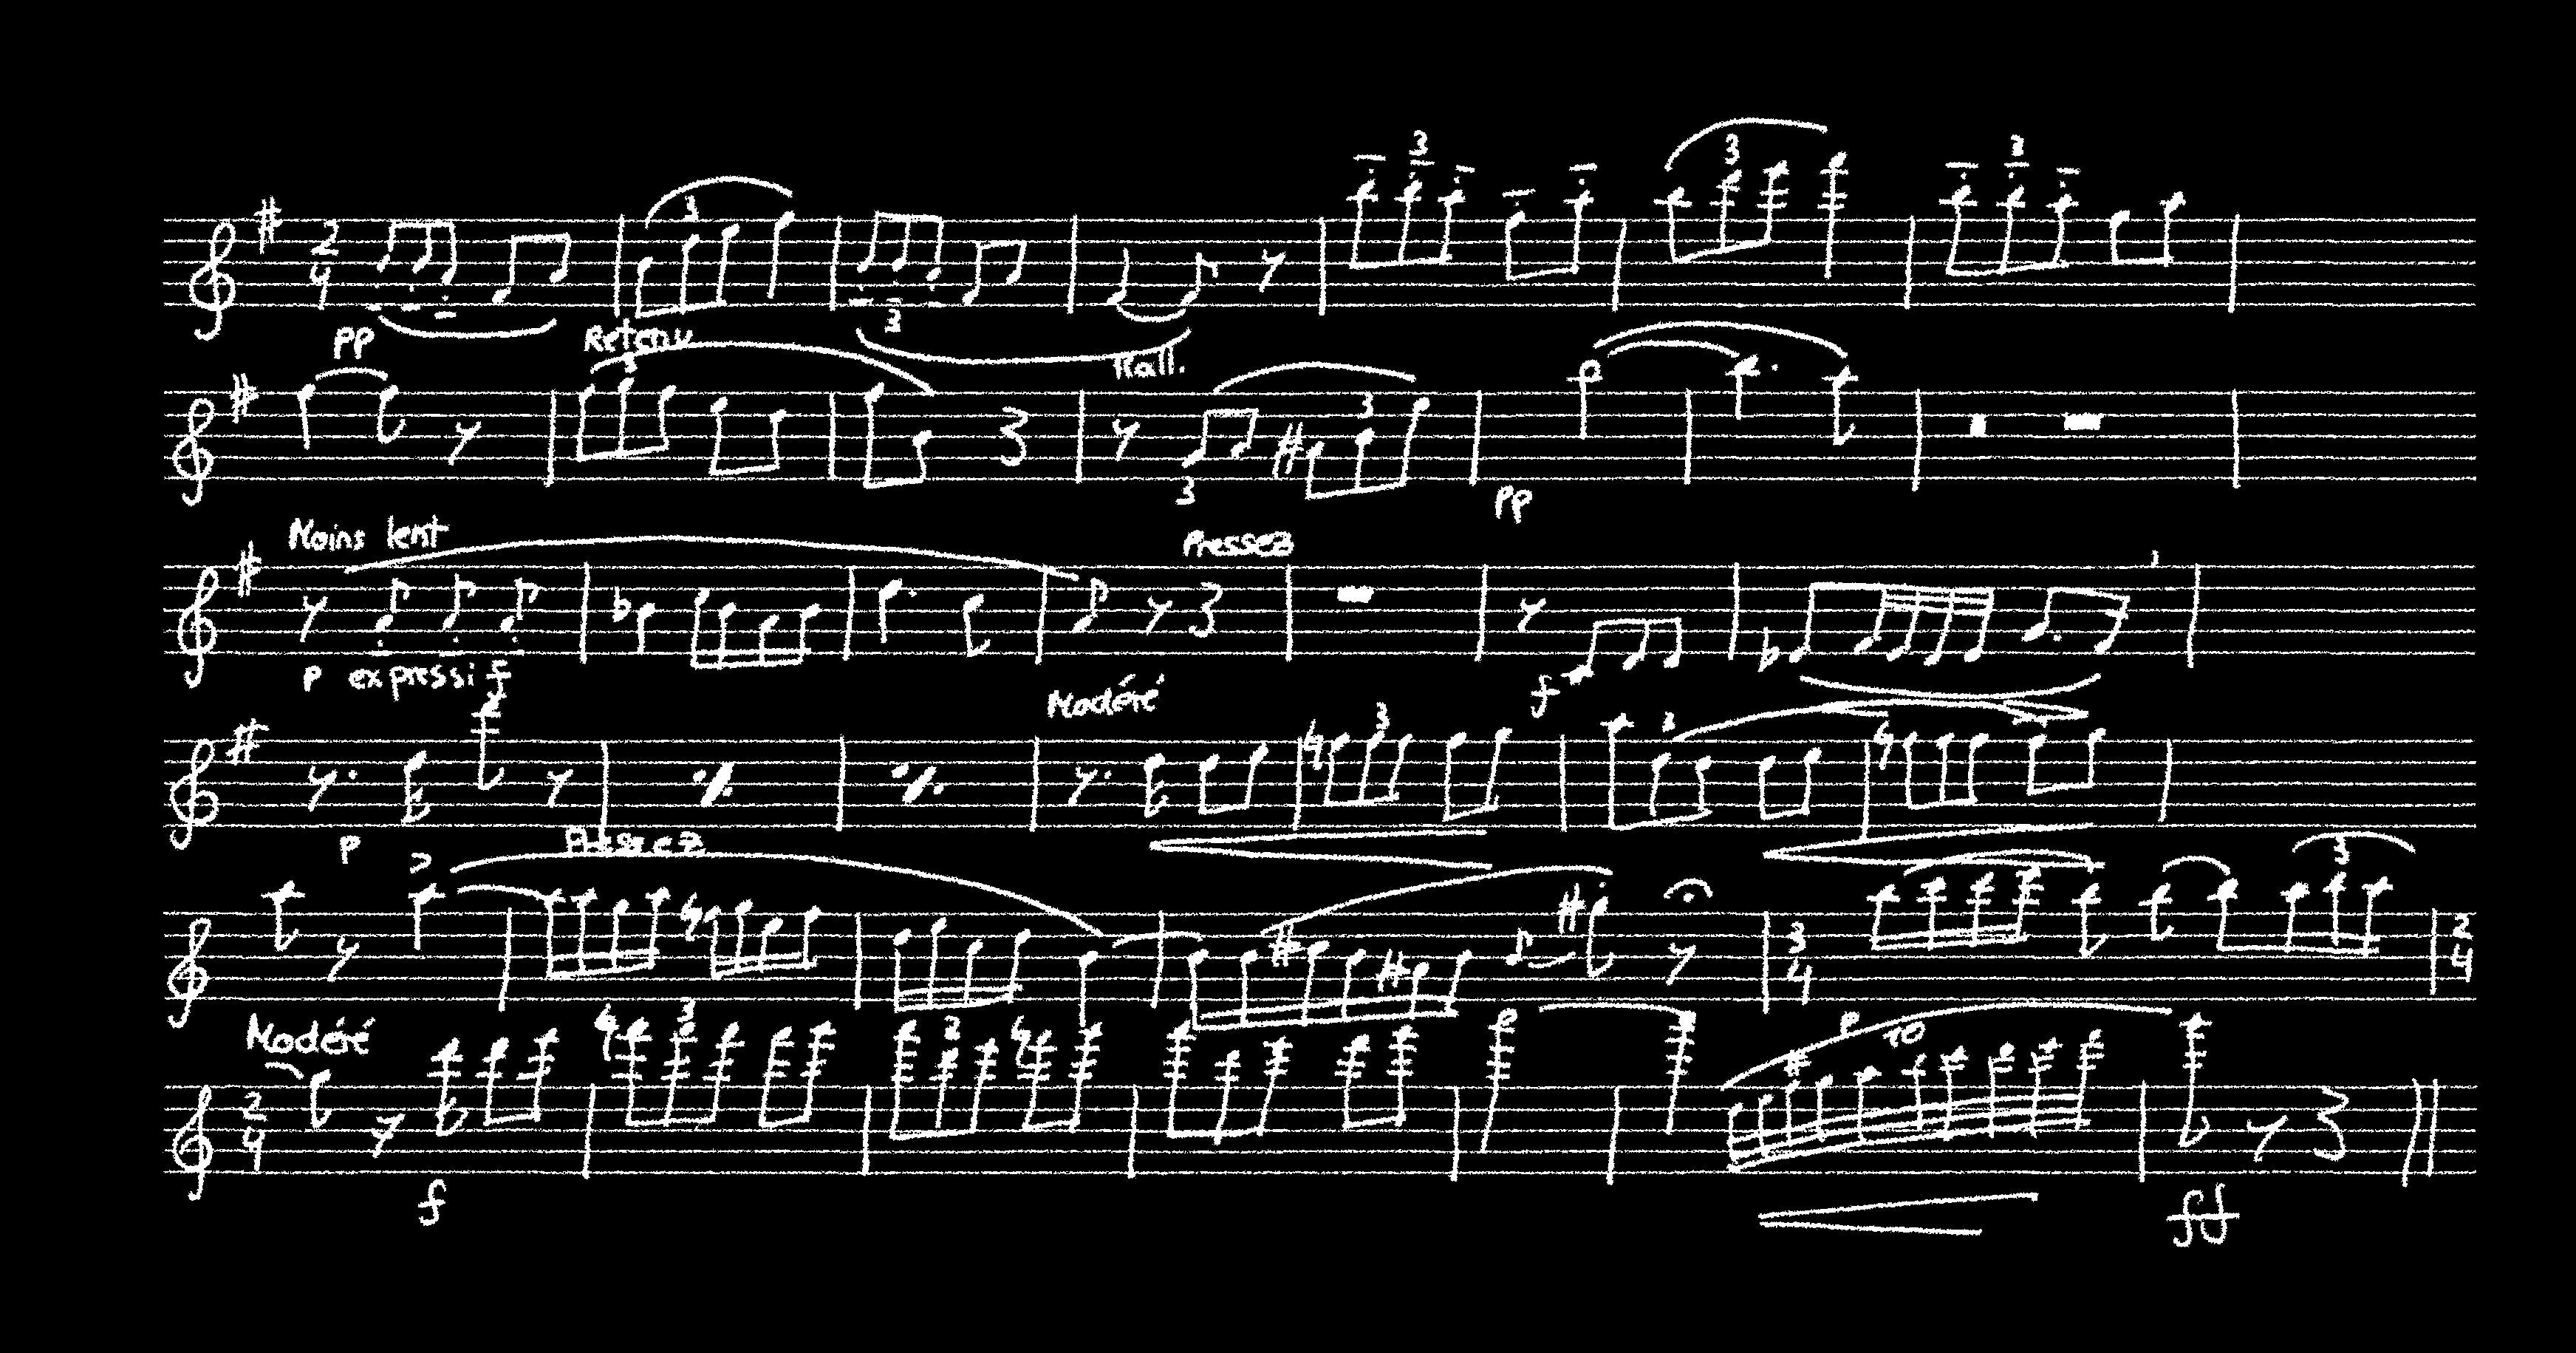 3 3 3
2 4 3
pp Retenu 3 Rall.
3 3
3 pp
Moins lent Pressez
p expressif f
Modéré 3 3
p Pressez
3
3 4 2 4
Modéré 3 3 p 10
2 4
f ff